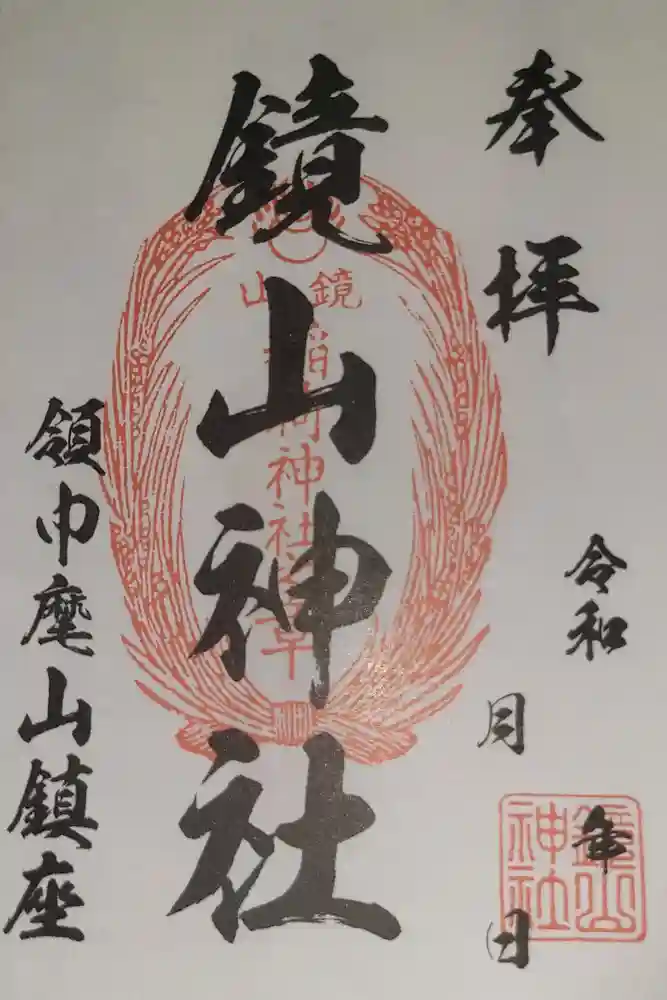 奉拝
令和 年
月 日
鏡山神社
鏡山
稲荷神社之章
鏡山
神社
領巾麾山鎮座